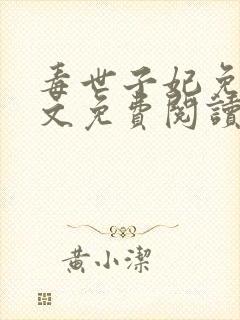 毒世子妃免
文免費閱讀
黃小潔